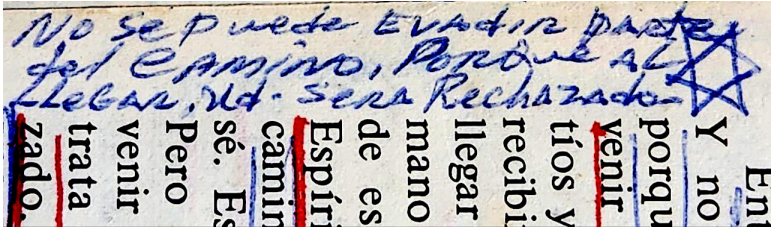 No se puede EVADIR parte
del CAMINO, PORQUE AL
LLEGAR, Ud. SERA Rechazado
Ent
Y no
porqu
venir
tíos y
recibi
llegar
mano
de es
Espíri
camin
sé. Es
Pero
venir
trata
zado.